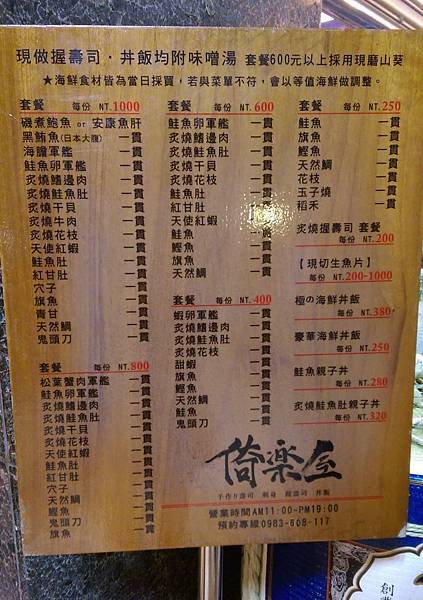 現做握壽司·丼飯均附味噌湯 套餐600元以上採用現磨山葵
★海鮮食材皆為當日採買，若與菜單不符，會以等值海鮮做調整。
套餐 每份 NT.1000
磯煮鮑魚 or 安康魚肝 一貫
黑鮪魚(日本大腹) 一貫
海膽軍艦 一貫
鮭魚卵軍艦 一貫
炙燒鰭邊肉 一貫
炙燒鮭魚肚 一貫
炙燒干貝 一貫
炙燒牛肉 一貫
炙燒花枝 一貫
天使紅蝦 一貫
鮭魚肚 一貫
紅甘肚 一貫
穴子 一貫
旗魚 一貫
青甘 一貫
天然鯛 一貫
鬼頭刀 一貫
套餐 每份 NT.800
松葉蟹肉軍艦 一貫
鮭魚卵軍艦 一貫
炙燒鰭邊肉 一貫
炙燒鮭魚肚 一貫
炙燒干貝 一貫
炙燒花枝 一貫
天使紅蝦 一貫
鮭魚肚 一貫
紅甘肚 一貫
穴子 一貫
天然鯛 一貫
鰹魚 一貫
鬼頭刀 一貫
旗魚 一貫
套餐 每份 NT.600
鮭魚卵軍艦 一貫
炙燒鰭邊肉 一貫
炙燒鮭魚肚 一貫
炙燒干貝 一貫
炙燒花枝 一貫
鮭魚肚 一貫
紅甘肚 一貫
天使紅蝦 一貫
鮭魚 一貫
鰹魚 一貫
旗魚 一貫
天然鯛 一貫
套餐 每份 NT.400
蝦卵軍艦 一貫
炙燒鰭邊肉 一貫
炙燒鮭魚肚 一貫
炙燒花枝 一貫
甜蝦 一貫
旗魚 一貫
鰹魚 一貫
天然鯛 一貫
鮭魚 一貫
鬼頭刀 一貫
套餐 每份 NT.250
鮭魚 一貫
旗魚 一貫
鰹魚 一貫
天然鯛 一貫
花枝 一貫
玉子燒 一貫
稻禾 一貫
炙燒握壽司 套餐
每份 NT.200
【現切生魚片】
每份 NT.200-1000
極の海鮮丼飯
每份 NT.380
豪華海鮮丼飯
每份 NT.250
鮭魚親子丼
每份 NT.280
炙燒鮭魚肚親子丼
每份 NT.320
倚楽屋
手作り壽司 刺身 握壽司 丼飯
營業時間AM11:00~PM19:00
預約專線0983-608-117
創